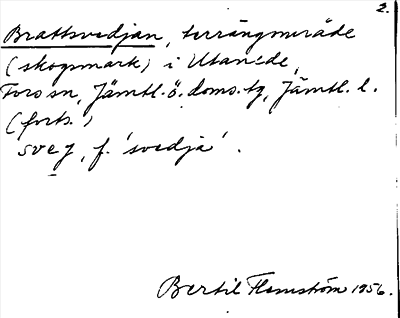 2.
Brattsvedjan, terrängområde
(skogsmark) i Utanede,
Fors sn, Jämtl. ö. doms. tg, Jämtl. l.
(forts.)
sveȷ, f. 'svedja'.
Bertil Flemström 1956.